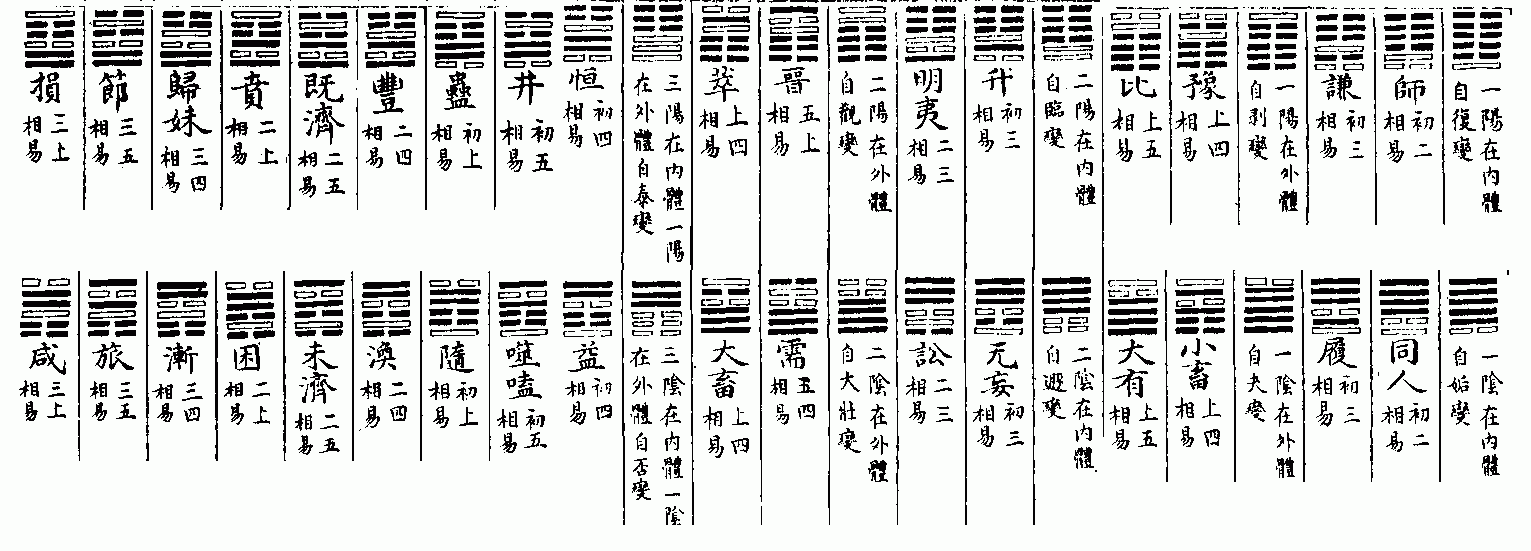 一陽在內體
自復變
師 初二相易
謙 初三相易
一陽在外體
自剝變
豫 上四相易
比 上五相易
二陽在內體
自臨變
升 初三相易
明夷 二三相易
二陽在外體
自觀變
晉 五上相易
萃 上四相易
三陽在內體一陽
在外體自泰變
恒 初四相易
井 初五相易
蠱 初上相易
豐 二四相易
既濟 二五相易
賁 二上相易
歸妹 三四相易
節 三五相易
損 三上相易
一陰在內體
自姤變
同人 初二相易
履 初三相易
一陰在外體
自夬變
小畜 上四相易
大有 上五相易
二陰在內體
自遯變
无妄 初三相易
訟 二三相易
二陰在外體
自大壯變
需 五四相易
大畜 上四相易
三陰在內體一陰
在外體自否變
益 初四相易
噬嗑 初五相易
隨 初上相易
渙 二四相易
未濟 二五相易
困 二上相易
漸 三四相易
旅 三五相易
咸 三上相易